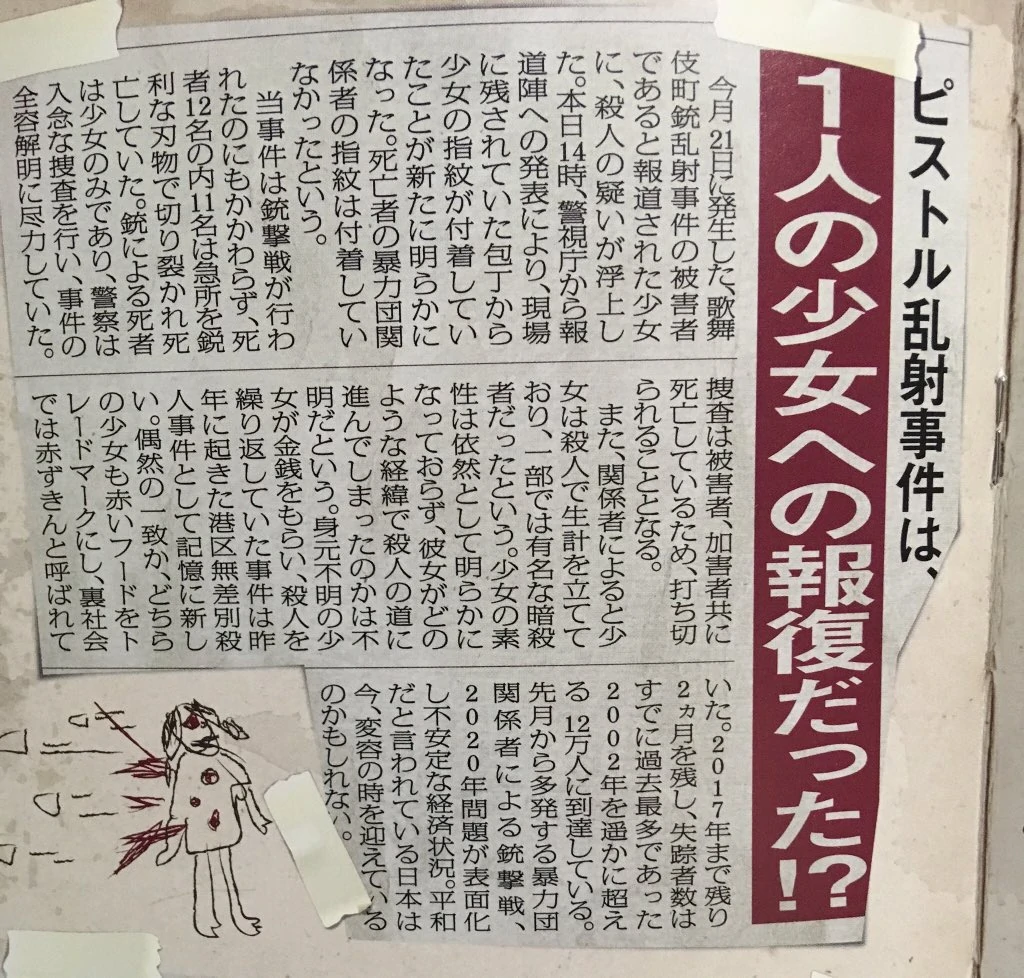 ピストル乱射事件は、
1人の少女への報復だった!?
今月21日に発生した、歌舞
伎町銃乱射事件の被害者
であると報道された少女
に、殺人の疑いが浮上し
た。本日14時、警視庁から報
道陣への発表により、現場
に残されていた包丁から
少女の指紋が付着してい
たことが新たに明らかに
なった。死亡者の暴力団関
係者の指紋は付着してい
なかったという。
当事件は銃撃戦が行わ
れたのにもかかわらず、死
者12名の内11名は急所を鋭
利な刃物で切り裂かれ死
亡していた。銃による死者
は少女のみであり、警察は
入念な捜査を行い、事件の
全容解明に尽力していた。
捜査は被害者、加害者共に
死亡しているため、打ち切
られることとなる。
また、関係者によると少
女は殺人で生計を立てて
おり、一部では有名な暗殺
者だったという。少女の素
性は依然として明らかに
なっておらず、彼女がどの
ような経緯で殺人の道に
進んでしまったのかは不
明だという。身元不明の少
女が金銭をもらい、殺人を
繰り返していた事件は昨
年に起きた港区無差別殺
人事件として記憶に新し
い。偶然の一致か、どちら
の少女も赤いフードをト
レードマークにし、裏社会
では赤ずきんと呼ばれて
いた。2017年まで残り
2ヵ月を残し、失踪者数は
すでに過去最多であった
2002年を遥かに超え
る12万人に到達している。
先月から多発する暴力団
関係者による銃撃戦、
2020年問題が表面化
し不安定な経済状況。平和
だと言われている日本は
今、変容の時を迎えている
のかもしれない。